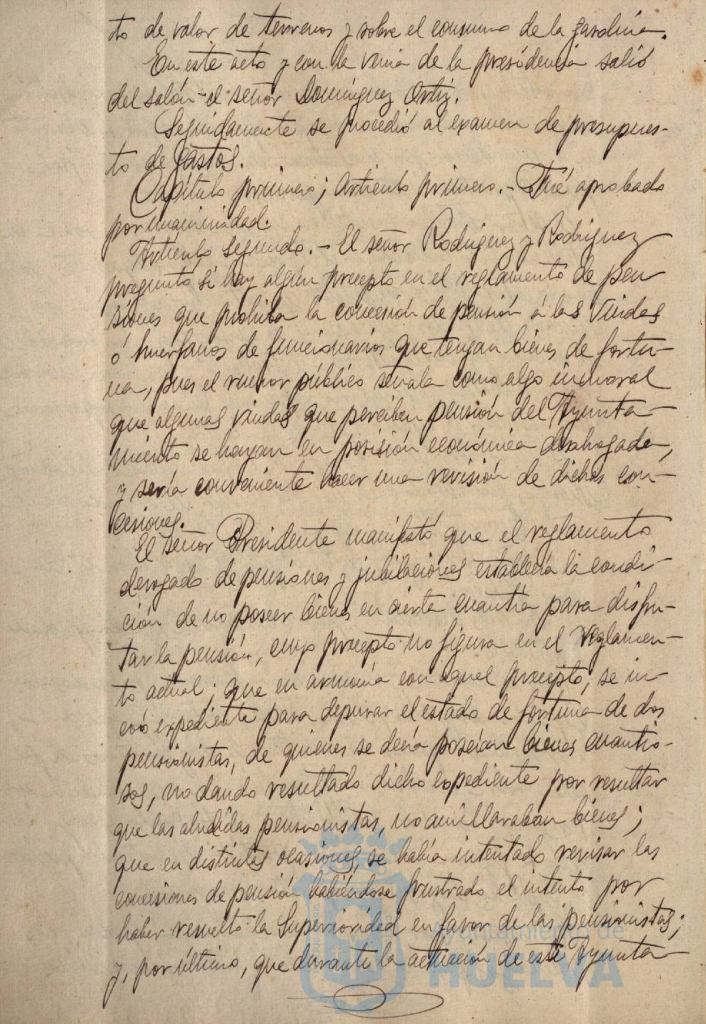 to de valor de terrenos y sobre el consumo de la gasolina.
En este acto y con la venia de la presidencia salió
del salón el señor Domínguez Ortiz.
Seguidamente se procedió al examen de presupues-
to de gastos.
Capítulo primero; Artículo primero.- Fué aprobado
por unanimidad.
Artículo segundo.- El señor Rodríguez y Rodríguez
preguntó si hay algún precepto en el reglamento de pen
siones que prohiba la concesión de pensión á las Viudas
ó huérfanos de funcionarios que tengan bienes de fortu-
na, pues el rumor público señala como algo inmoral
que algunas viudas que perciben pensión del Ayunta-
miento se hayan en posisión económica desahogada,
y sería conveniente hacer una revisión de dichas con-
cesiones.
El señor Presidente manifestó que el reglamento
derogado de pensiones y jubilaciones establecía la condi-
ción de no poseer bienes en cierta cuantía para disfru-
tar la pensión, cuyo precepto no figura en el reglamen-
to actual; que en armonía con aquel precepto, se in
coó expediente para depurar el estado de fortuna de dos
pensionistas, de quienes se decía poseían bienes cuantio-
sos, no dando resultado dicho expediente por resultar
que las aludidas pensionistas, no amillaraban bienes;
que en distintas ocasiones, se había intentado revisar las
concesiones de pensión habiéndose frustrado el intento por
haber resuelto la Superioridad en favor de las pensionistas;
y, por último, que durante la actuación de este Ayunta-
HUELVA